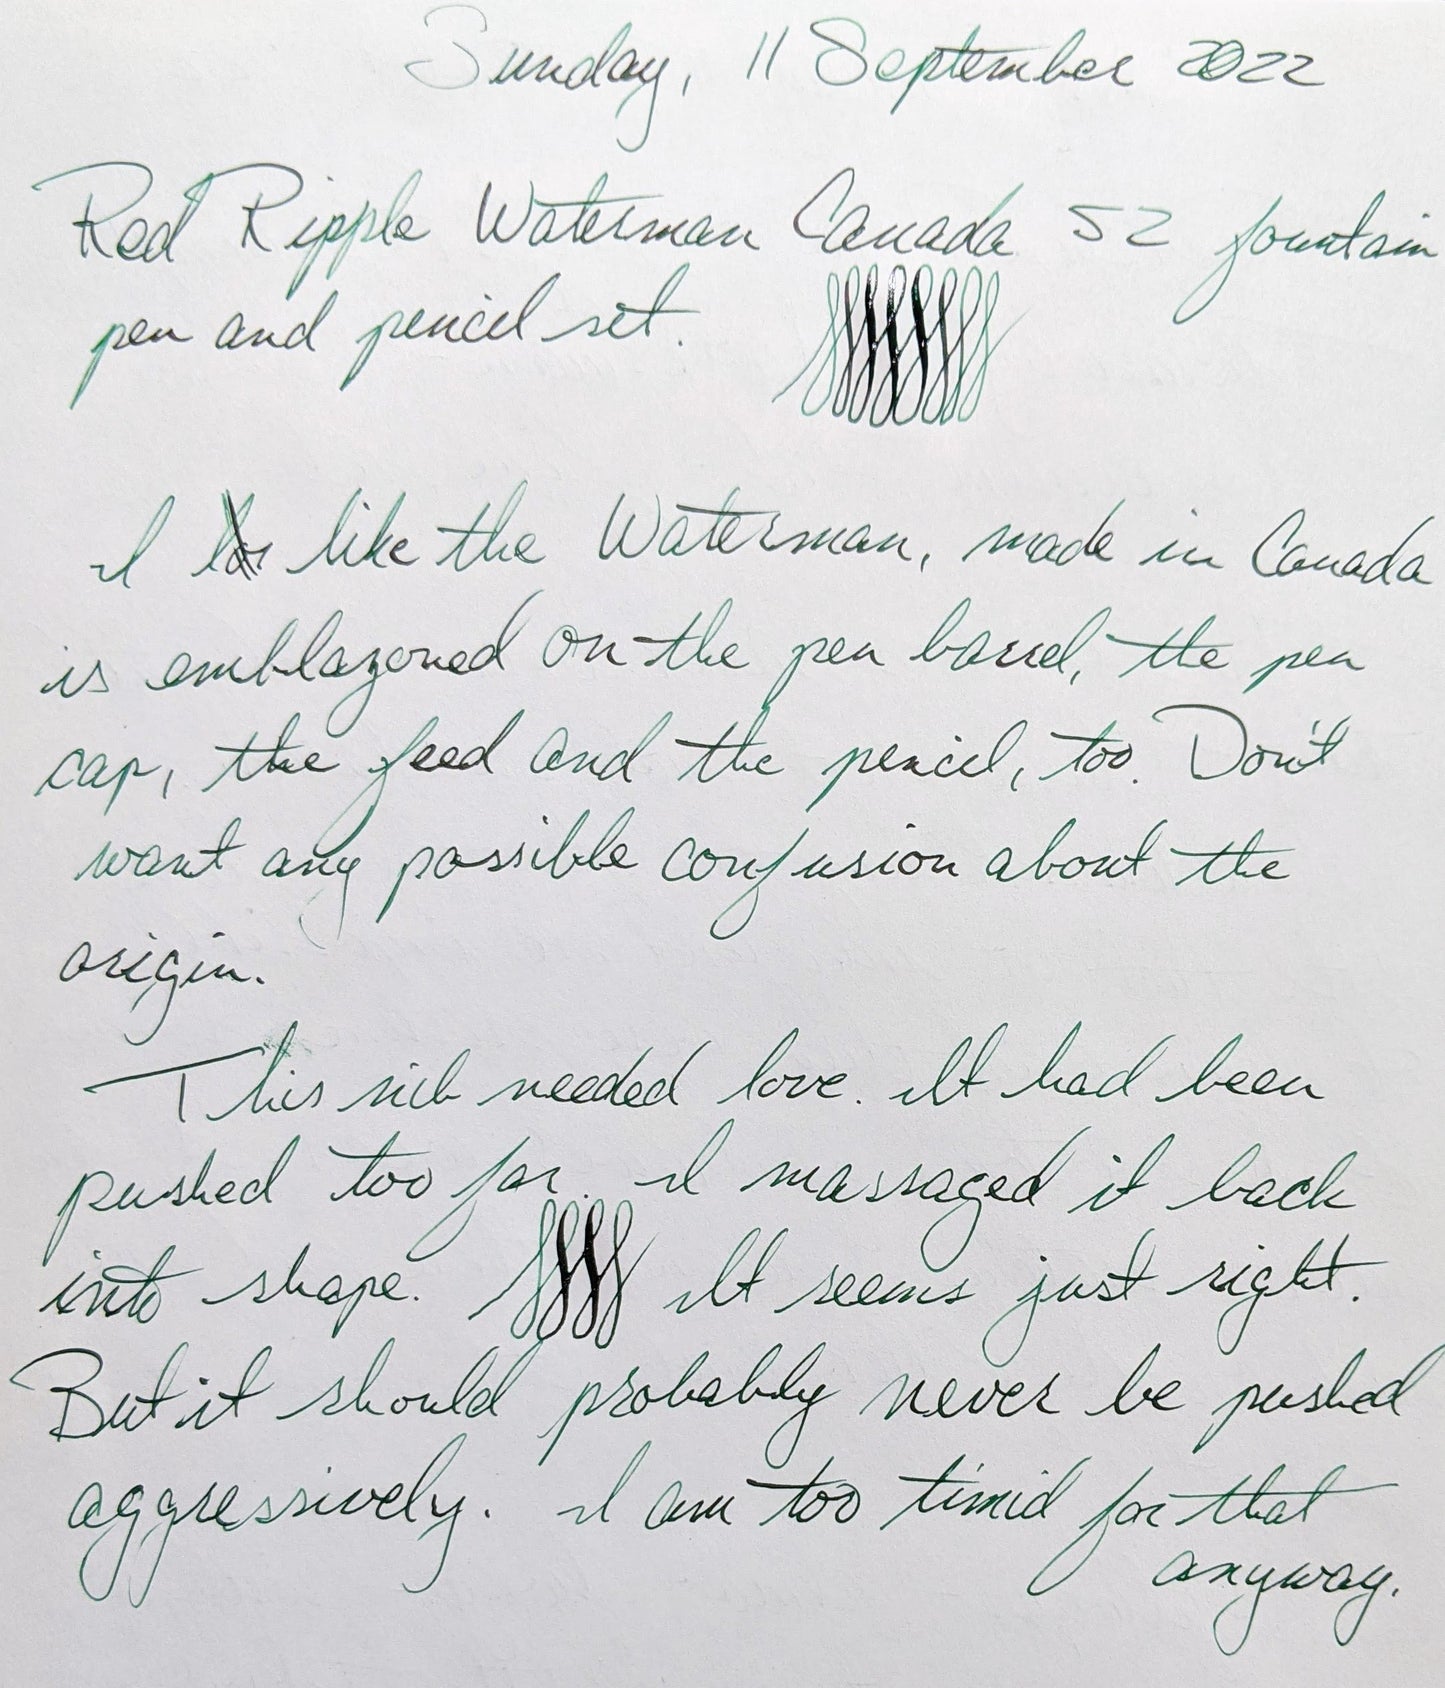 Sunday, 11 September 2022
Red Ripple Waterman Canada 52 fountain
pen and pencil set.
I like the Waterman, made in Canada
is emblazoned on the pen barrel, the pen
cap, the feed and the pencil, too. Don't
want any possible confusion about the
origin.
This nib needed love. It had been
pushed too far. I massaged it back
into shape. It seems just right.
But it should probably never be pushed
aggressively. I am too timid for that
anyway.